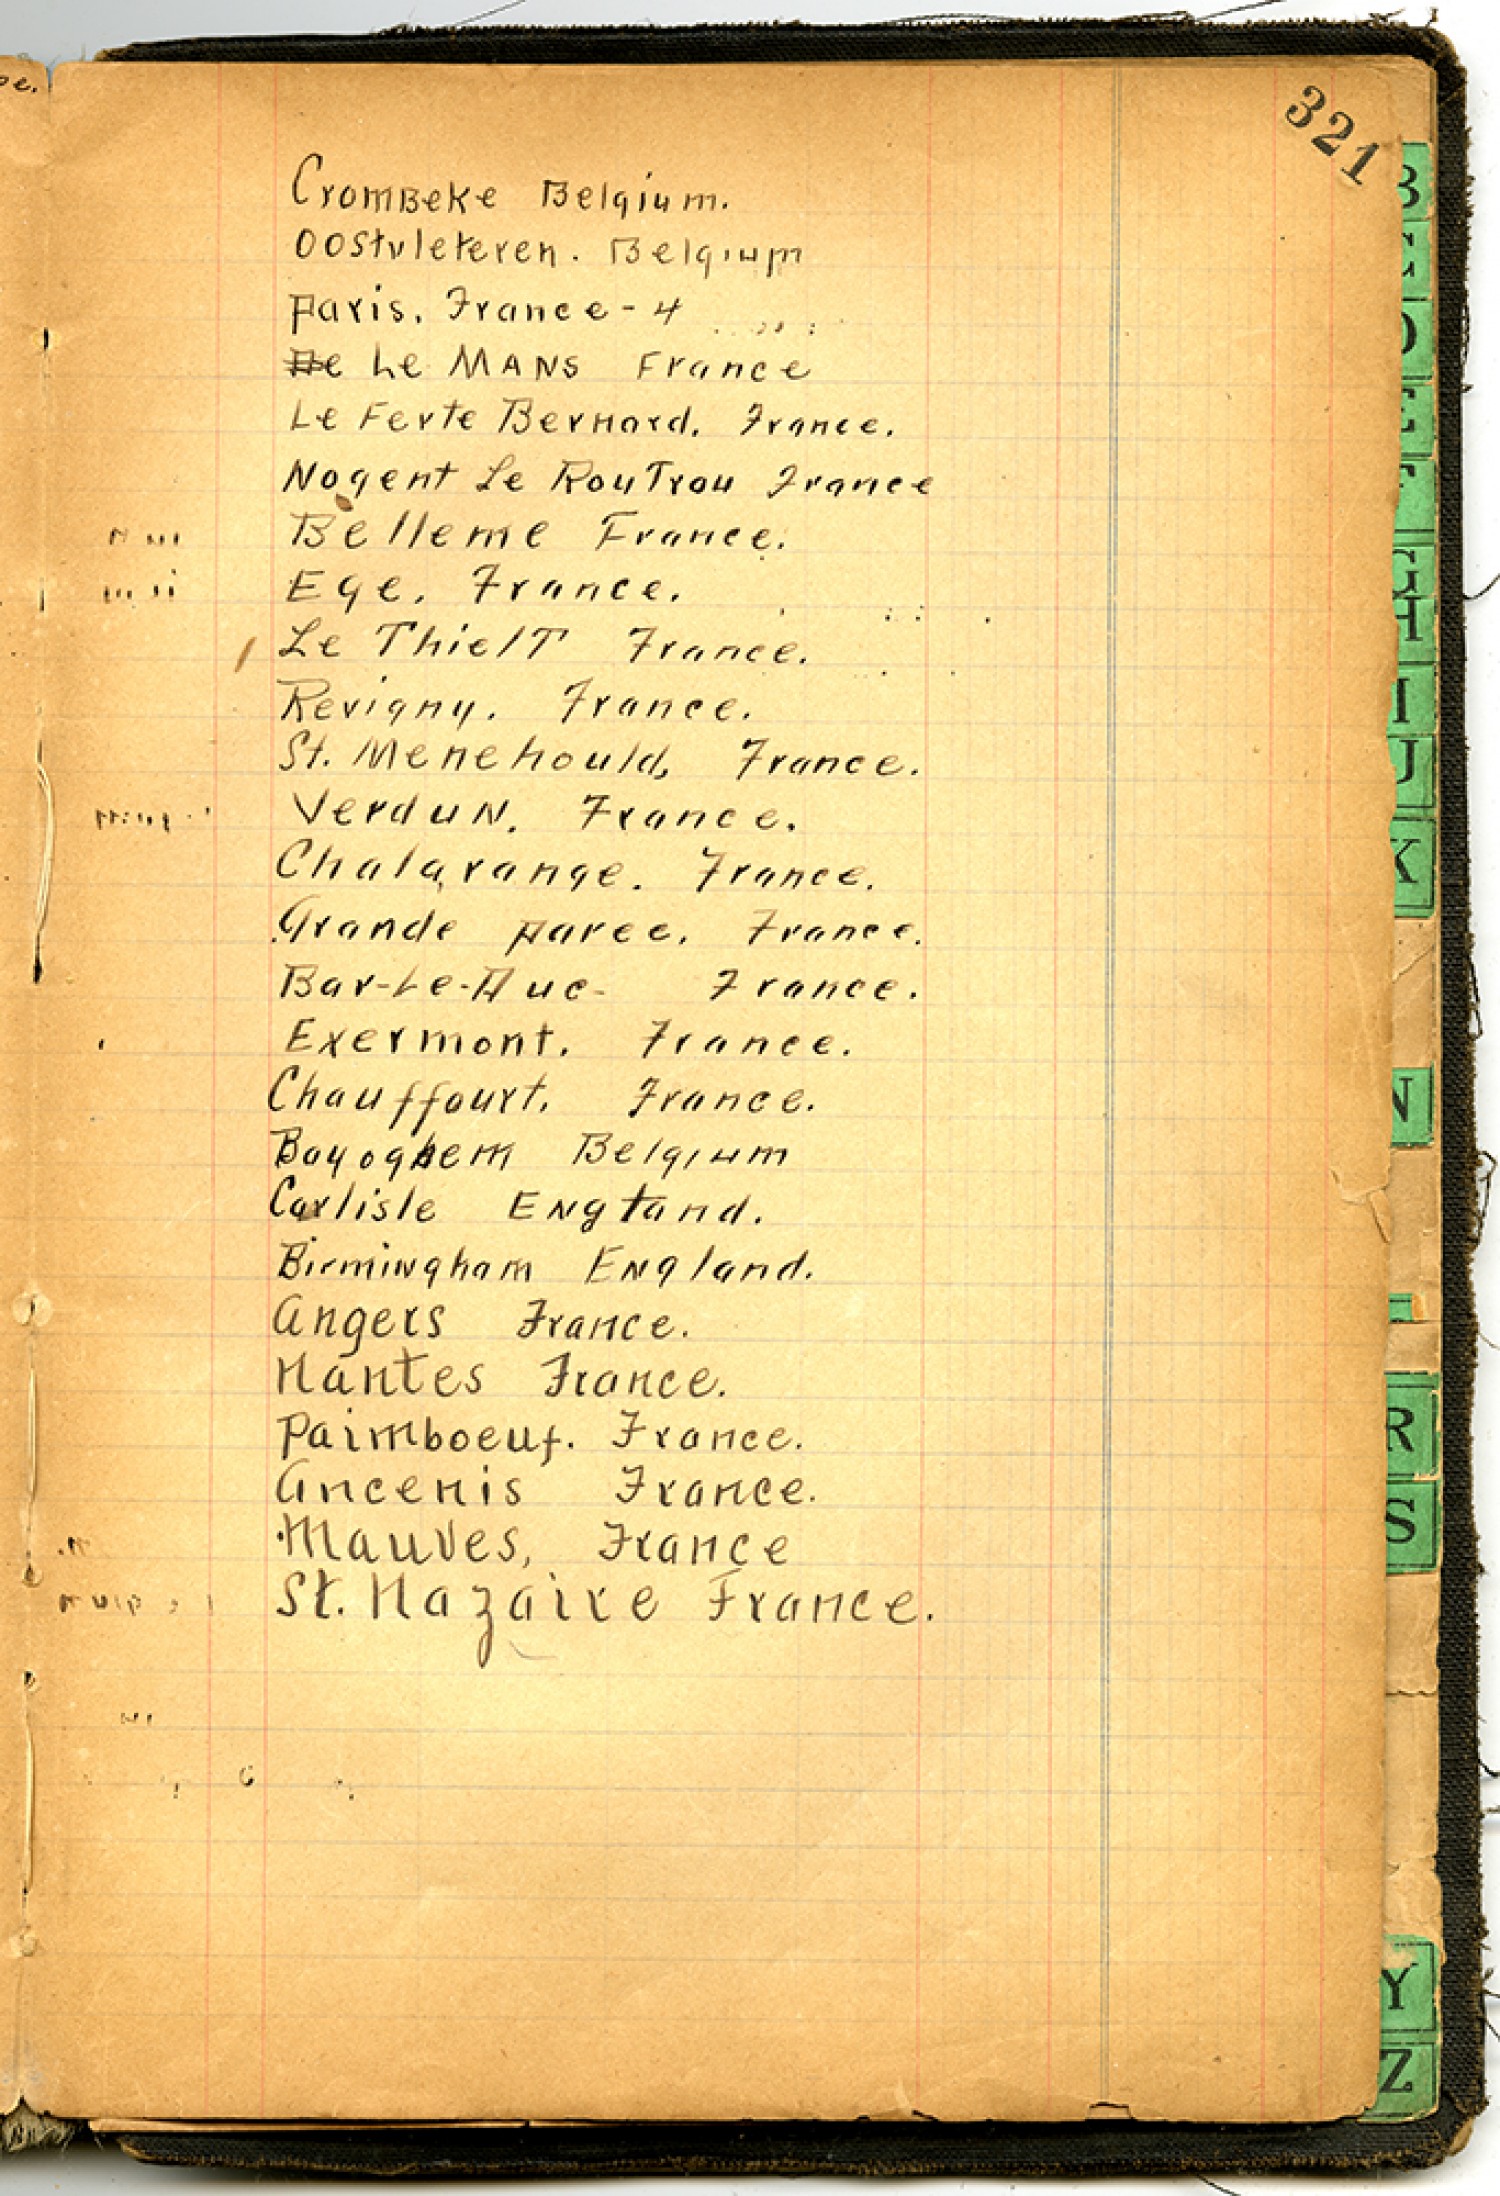 oe.
321
CromBeke Belgium.
Oostvleteren. Belgium
Paris, France-4
Le MANS France
Le Ferte Bernard. France.
Nogent Le RouTrou France
Belleme France.
Ege. France.
Le ThielT France.
Revigny. France.
St. Menehould, France.
VerduN. France.
Chalarange. France.
Grande paree. France.
Bar-Le-Duc- France.
Exermont. France.
Chauffourt. France.
Boyoghem Belgium
Carlisle ENgtand.
BirmiNgham ENgland.
Angers France.
Nantes France.
Paimboeuf. France.
Ancenis France.
Mauves, France
St. Nazaire France.
B
C
D
E
F
G
H
I
J
K
N
R
S
Y
Z